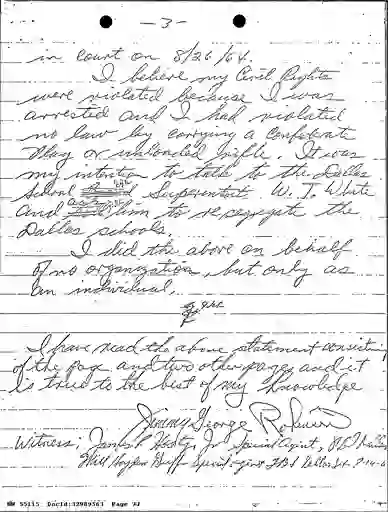 - 3 -
in court on 8/26/64.
I believe my Civil Rights
were violated because I was
arrested and I had violated
no law by carrying a Confederate
Flag or unloaded rifle. It was
my intention to talk to the Dallas
School Superintent W. T. White
and ask him to resegregate the
Dallas schools.
I did the above on behalf
of no organization, but only as
an individual.
I have read the above statement consisting
of the page and two other pages and it
is true to the best of my knowledge
Jimmy George Robinson
Witness: James P. Hosty, Jr. Special Agent, FBI Dallas
Will Hayden Griffin Special Agent FBI Dallas
55115 DocId:32989563 Page 92